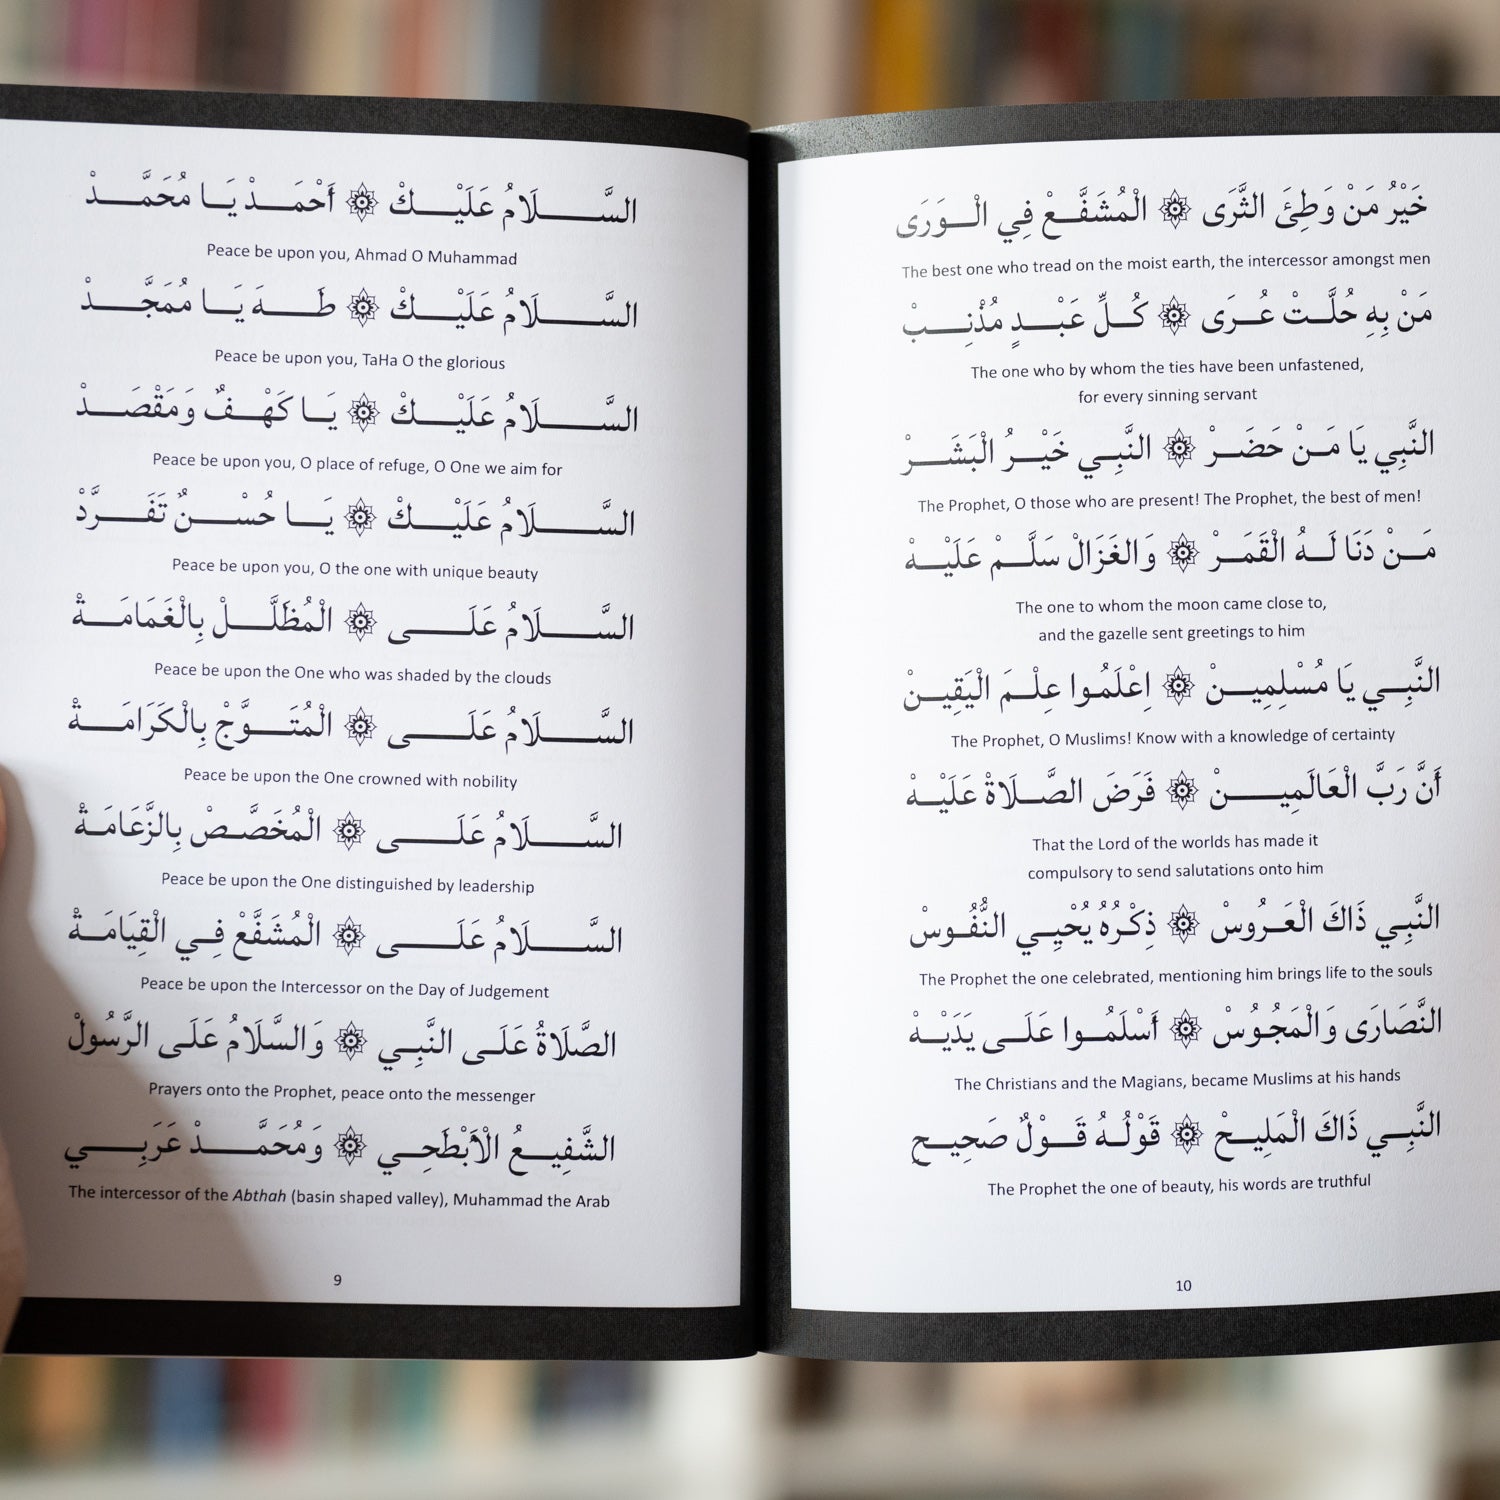 السَّلَامُ عَلَيْكْ ۞ أَحْمَدْ يَا مُحَمَّدْ
Peace be upon you, Ahmad O Muhammad
السَّلَامُ عَلَيْكْ ۞ طَهَ يَا مُمَجَّدْ
Peace be upon you, TaHa O the glorious
السَّلَامُ عَلَيْكْ ۞ يَا كَهْفٌ وَمَقْصَدْ
Peace be upon you, O place of refuge, O One we aim for
السَّلَامُ عَلَيْكْ ۞ يَا حُسْنٌ تَفَرَّدْ
Peace be upon you, O the one with unique beauty
السَّلَامُ عَلَى ۞ الْمُظَلَّلْ بِالْغَمَامَةْ
Peace be upon the One who was shaded by the clouds
السَّلَامُ عَلَى ۞ الْمُتَوَّجْ بِالْكَرَامَةْ
Peace be upon the One crowned with nobility
السَّلَامُ عَلَى ۞ الْمُخَصَّصْ بِالزَّعَامَةْ
Peace be upon the One distinguished by leadership
السَّلَامُ عَلَى ۞ الْمُشَفَّعْ فِي الْقِيَامَةْ
Peace be upon the Intercessor on the Day of Judgement
الصَّلَاةُ عَلَى النَّبِي ۞ وَالسَّلَامُ عَلَى الرَّسُولْ
Prayers onto the Prophet, peace onto the messenger
الشَّفِيعُ الْأَبْطَحِي ۞ وَمُحَمَّدْ عَرَبِي
The intercessor of the Abthah (basin shaped valley), Muhammad the Arab
9
خَيْرُ مَنْ وَطِئَ الثَّرَى ۞ الْمُشَفَّعْ فِي الْوَرَى
The best one who tread on the moist earth, the intercessor amongst men
مَنْ بِهِ حُلَّتْ عُرَى ۞ كُلِّ عَبْدٍ مُذْنِبْ
The one who by whom the ties have been unfastened,
for every sinning servant
النَّبِي يَا مَنْ حَضَرْ ۞ النَّبِي خَيْرُ الْبَشَرْ
The Prophet, O those who are present! The Prophet, the best of men!
مَنْ دَنَا لَهُ الْقَمَرْ ۞ وَالغَزَالْ سَلَّمْ عَلَيْهْ
The one to whom the moon came close to,
and the gazelle sent greetings to him
النَّبِي يَا مُسْلِمِينْ ۞ اِعْلَمُوا عِلْمَ الْيَقِينْ
The Prophet, O Muslims! Know with a knowledge of certainty
أَنَّ رَبَّ الْعَالَمِينْ ۞ فَرَضَ الصَّلَاةْ عَلَيْهْ
That the Lord of the worlds has made it
compulsory to send salutations onto him
النَّبِي ذَاكَ الْعَرُوسْ ۞ ذِكْرُهُ يُحْيِي النُّفُوسْ
The Prophet the one celebrated, mentioning him brings life to the souls
النَّصَارَى وَالْمَجُوسْ ۞ أَسْلَمُوا عَلَى يَدَيْهْ
The Christians and the Magians, became Muslims at his hands
النَّبِي ذَاكَ الْمَلِيحْ ۞ قَوْلُهُ قَوْلٌ صَحِيح
The Prophet the one of beauty, his words are truthful
10